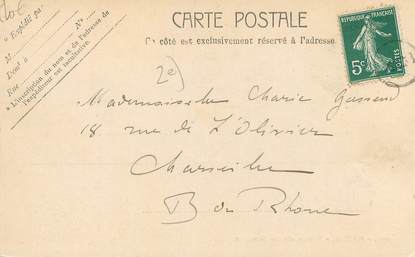 CARTE POSTALE
Ce côté est exclusivement réservé à l'adresse
* Expédié par
M
Demt à
Rue Nº
* L'inscription du nom et de l'adresse de
l'expéditeur est facultative.
REPUBLIQUE FRANÇAISE
5c
POSTES
2e)
Mademoiselle Marie Gassend
18 rue de L'Olivier
Marseille
B du Rhone